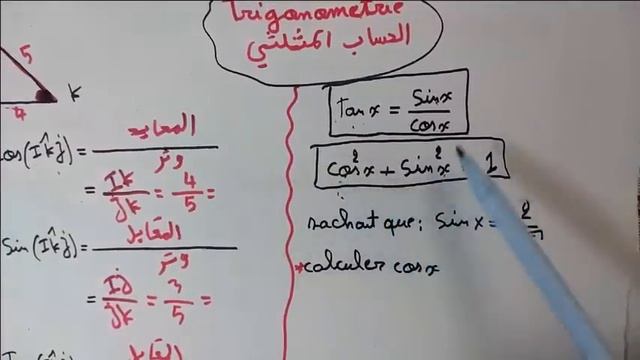 Trigonometrie
الحساب المثلثي
5
K
4
cos(IK̂J) = المجاور / وتر
= IK/JK = 4/5 =
Sin(IK̂J) = المقابل / وتر
= IJ/JK = 3/5 =
المقابل
tan x = Sinx/cosx
cos²x + Sin²x 1
sachant que: Sin x = 2
*calculer cosx